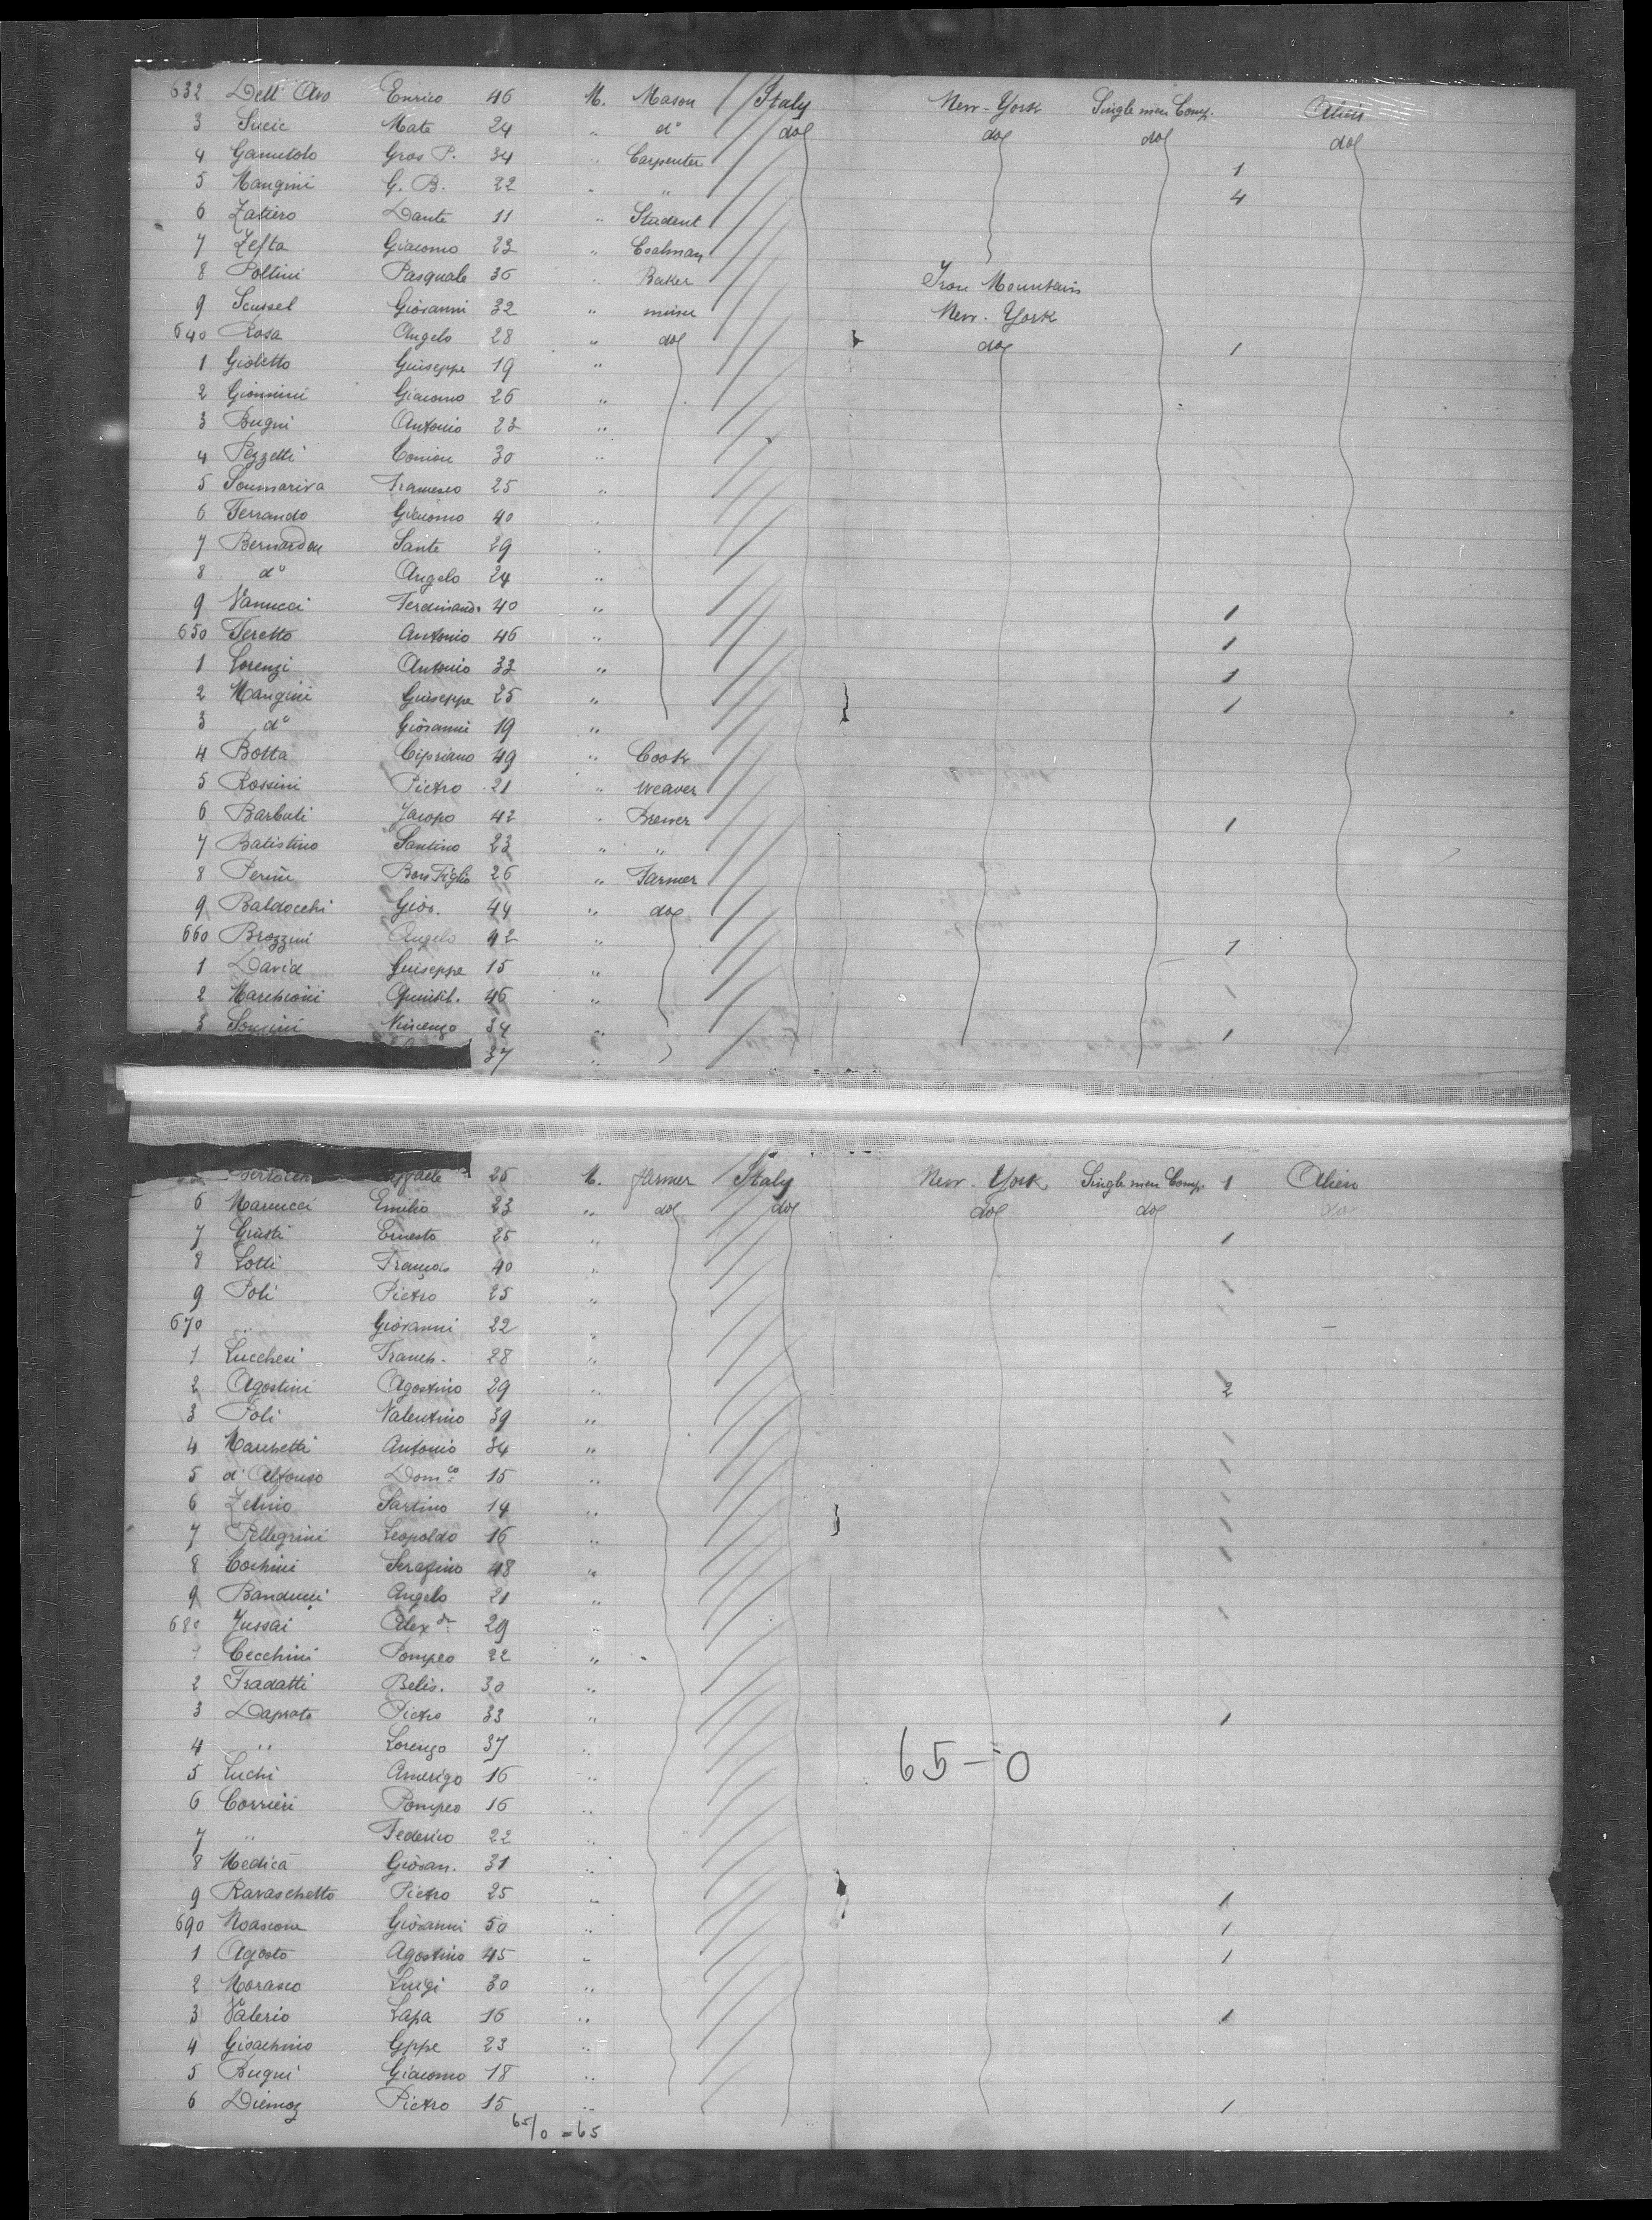 632 Dell' Avo Enrico 46 M. Mason Italy New-York Single men Comp. Alien
3 Sucic Mate 24 " d° do do do do
4 Gamutolo Gros P. 34 " Carpenter 1
5 Mangini G. B. 22 " " 4
6 Zatiero Dante 11 " Student
7 Zefta Giacomo 23 " Coalman
8 Poltini Pasquale 36 " Baker Iron Mountain
9 Scussel Giovanni 32 " miner New-York
640 Rosa Angelo 28 " do do 1
1 Gioletto Guiseppe 19 "
2 Gionnini Giacomo 26 "
3 Bugni Antonio 23 "
4 Pezzetti 30 "
5 Sommariva 25 "
6 Ferrando Giacomo 40 "
7 Sante 29 "
8 d° Angelo 24 "
9 Vanucci Ferdinando 40 " 1
650 Feretto Antonio 46 " 1
1 Lorenzi Antonio 33 " 1
2 Mangini Guiseppe 25 " 1
3 d° Giovanni 19 "
4 Botta Cipriano 49 " Cook
5 Rossini Pietro 21 " Weaver
6 Barbuti Jacopo 42 " Brewer 1
7 Batistino Santino 23 " "
8 Perini Bon Figlio 26 " Farmer
9 Baldocchi Giov. 44 " do
660 Brozzini Angelo 42 " 1
1 David Guiseppe 15 "
2 Marchioni 46 "
3 Vincenzo 34 " 1
37 "
25 M. farmer Italy New-York Single men Comp. 1 Alien
6 Marucci Emilio 23 " do do do do do
7 Giusti Ernesto 25 " 1
8 Lotti François 40 "
9 Poli Pietro 25 "
670 " Giovanni 22 "
1 Lucchesi Franch. 28 "
2 Agostini Agostino 29 " 2
3 Poli Valentino 39 "
4 Marchetti Antonio 34 "
5 d'Alfonso Dom.co 15 "
6 Zelino Sartino 14 "
7 Pellegrini Leopoldo 16 "
8 Cochini Serafino 48 "
9 Banducci Angelo 21 "
680 Jussai Alex.dr 29 "
Cecchini Pompeo 22 "
2 Fradatti Belis. 30 "
3 Daprato Pietro 33 " 1
4 " Lorenzo 37 " 65-0
5 Luchi Amerigo 16 "
6 Corrieri Pompeo 16 "
7 " Federico 22 "
8 Medica Giovan. 31 "
9 Ravaschetto Pietro 25 " 1
690 Giovanni 50 " 1
1 Agosto Agostino 45 " 1
2 Morasco Luigi 30 "
3 Valerio Lapa 16 " 1
4 Gioachino Gppe 23 "
5 Bugni Giacomo 18 "
6 Diemoz Pietro 15 " 1
65/0 = 65